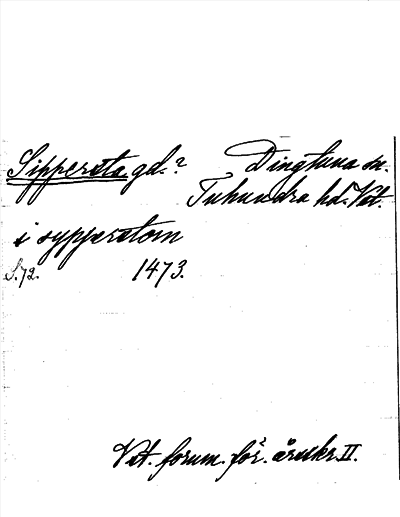 Sippersta gd.? Dingtuna sn.
Tuhundra hd. Vst.
i sypperstom
S. 72. 1473.
Vst. fornm. för. årsskr. II.